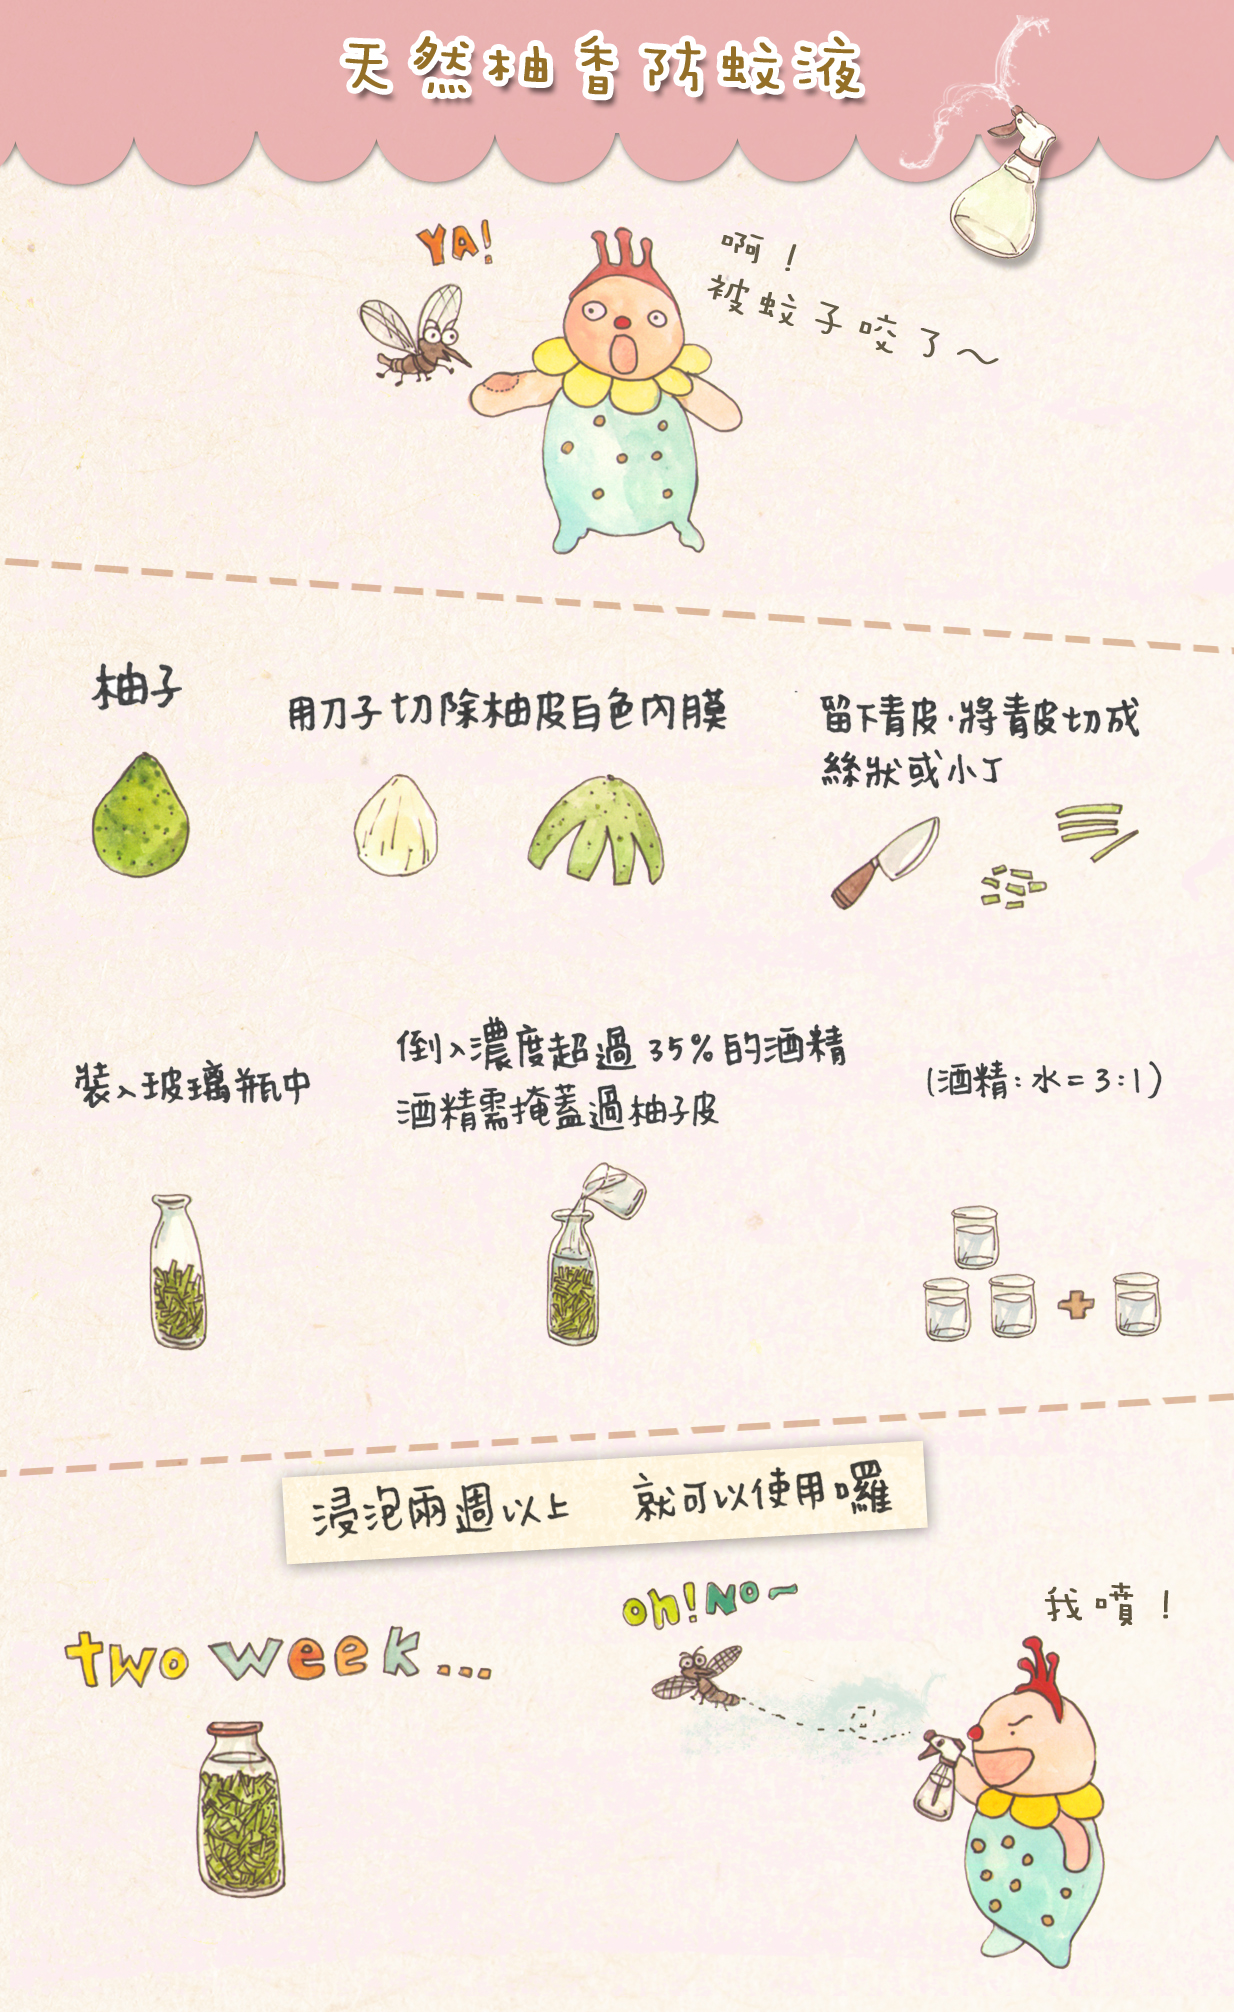 天然柚香防蚊液
YA!
啊！
被蚊子咬了～
柚子
用刀子切除柚皮白色內膜
留下青皮．將青皮切成
絲狀或小丁
裝入玻璃瓶中
倒入濃度超過35%的酒精
酒精需掩蓋過柚子皮
(酒精:水=3:1)
浸泡兩週以上 就可以使用囉
oh!No~
我噴！
two week...